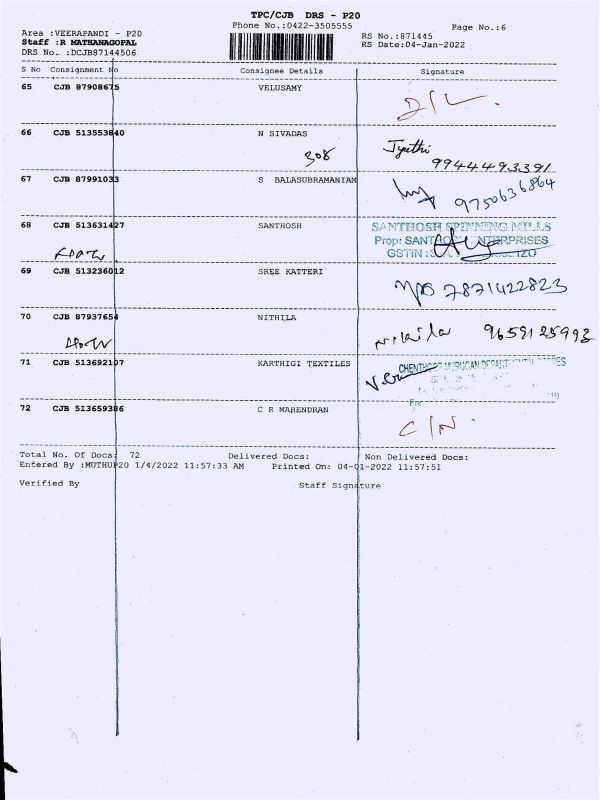 TPC/CJB DRS - P20
Phone No.:0422-3505555 Page No.:6
Area :VEERAPANDI - P20
Staff :R MATHANAGOPAL
DRS No. :DCJB87144506
RS No.:871445
RS Date:04-Jan-2022
S No Consignment No Consignee Details Signature
65 CJB 87908675 VELUSAMY
66 CJB 513553840 N SIVADAS
308 Jyothi
9944493391
67 CJB 87991033 S BALASUBRAMANIAM
9750636864
68 CJB 513631427 SANTHOSH SANTHOSH SPINNING MILLS
Prop: ENTERPRISES
GSTIN :
69 CJB 513236012 SREE KATTERI
7871422823
70 CJB 87937654 NITHILA
9659125993
71 CJB 513692107 KARTHIGI TEXTILES
72 CJB 513659386 C R MAHENDRAN
Total No. Of Docs: 72 Delivered Docs: Non Delivered Docs:
Entered By :MUTHUP20 1/4/2022 11:57:33 AM Printed On: 04-01-2022 11:57:51
Verified By Staff Signature